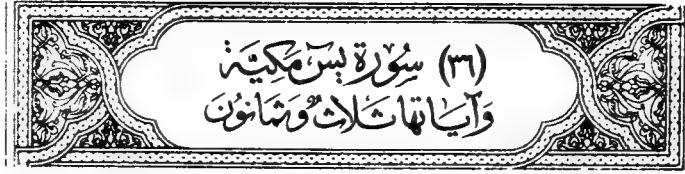 (٣٦) سُورَةِ يسَٓ مَكِيَّة
وَآيَاتِهَا ثَلَاثٌ وَثَمَانُونَ